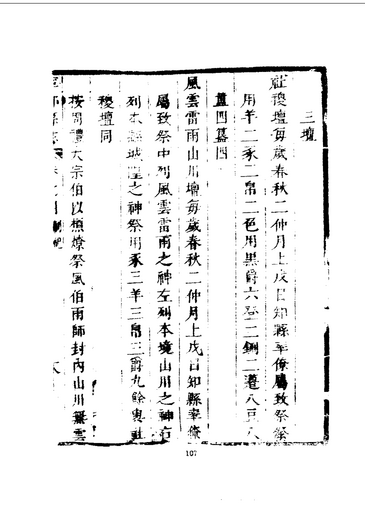 三壇
社稷壇每歲春秋二仲月上戊日知縣率僚屬致祭祭
用羊二豕二帛二色用黑爵六登二鉶二籩八豆八
簠四簋四
風雲雷雨山川壇每歲春秋二仲月上戊日知縣率僚
屬致祭中列風雲雷雨之神左列本境山川之神右
列本縣城隍之神祭用豕三羊三帛三爵九餘與社
稷壇同
按周禮大宗伯以槱燎祭風伯雨師封內山川龔雲
107